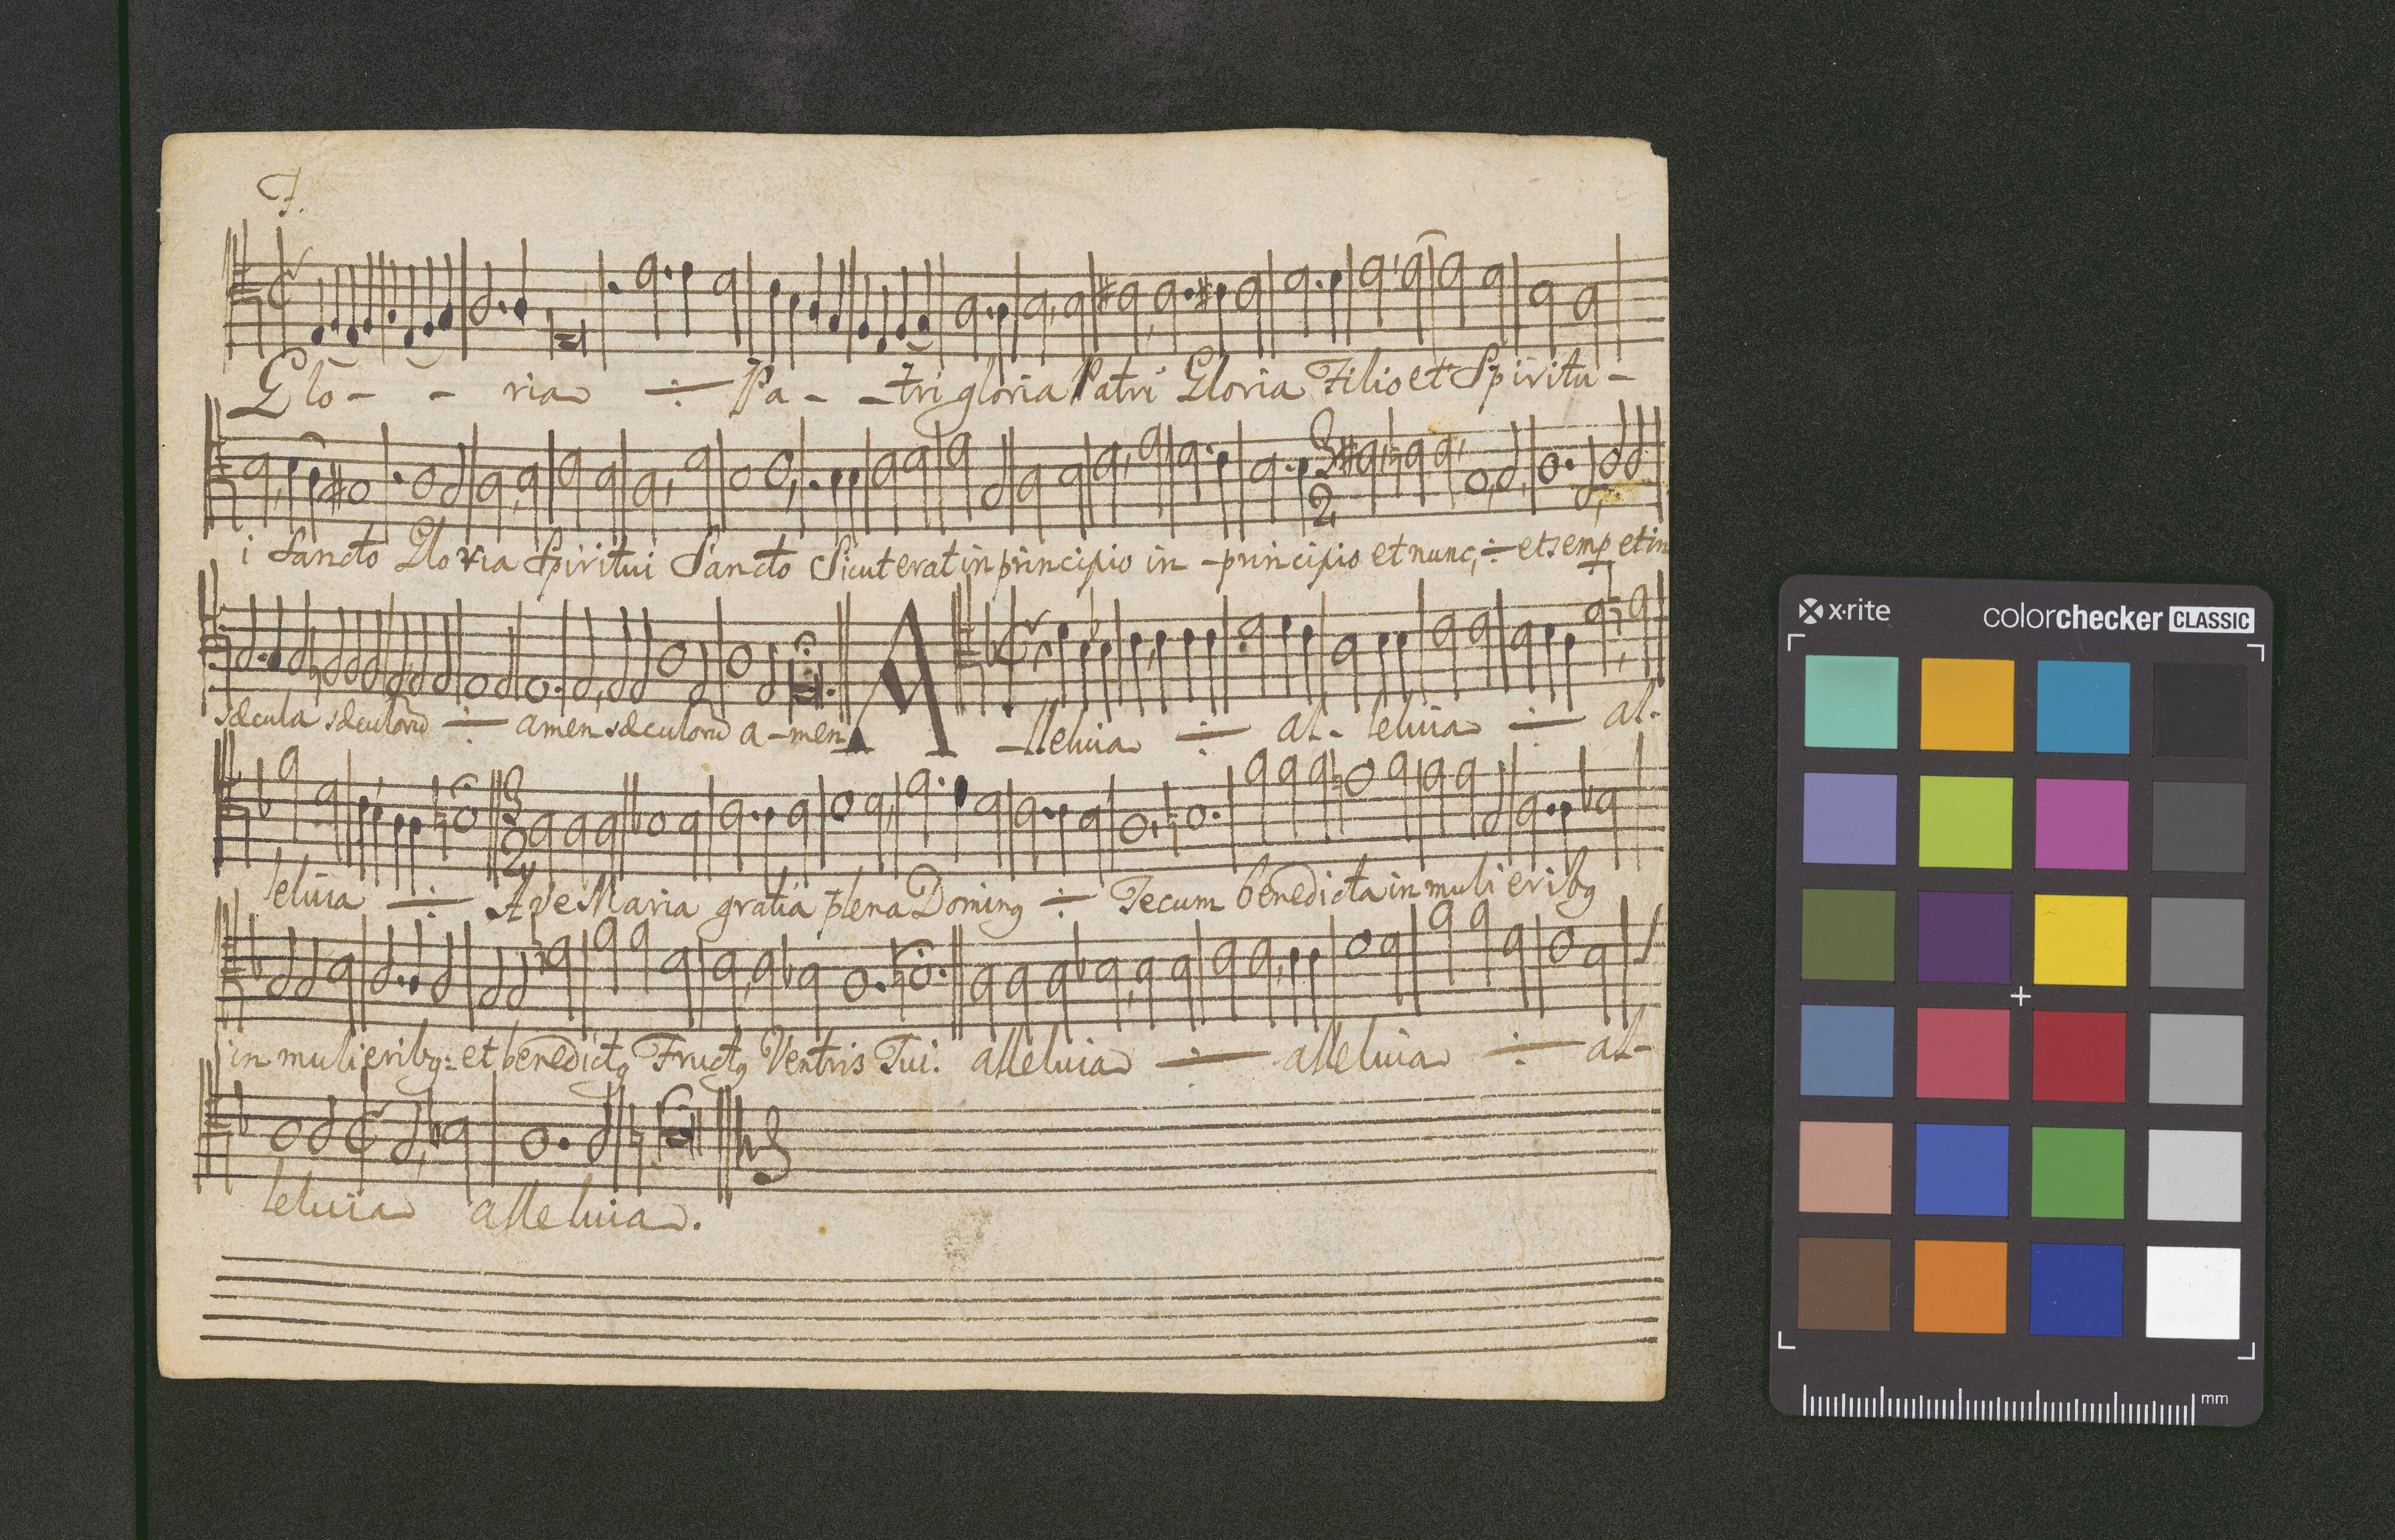 T.
Glo - - ria ÷ Pa - - tri gloria Patri Gloria Filio et Spiritu -
i Sancto Gloria Spiritui Sancto Sicut erat in principio in - principio et nunc, ÷ et semp et in
sæcula sæculorũ ÷ amen sæculorũ a - men A - lleluia ÷ al - leluia ÷ al -
leluia ÷ Ave Maria gratia plena Dominꝯ ÷ Tecum benedicta in mulieribꝯ
in mulieribꝯ: et benedictꝯ Fructꝯ Ventris Tui. alleluia ÷ alleluia ÷ al -
leluia alleluia.
x-rite
colorchecker CLASSIC
mm